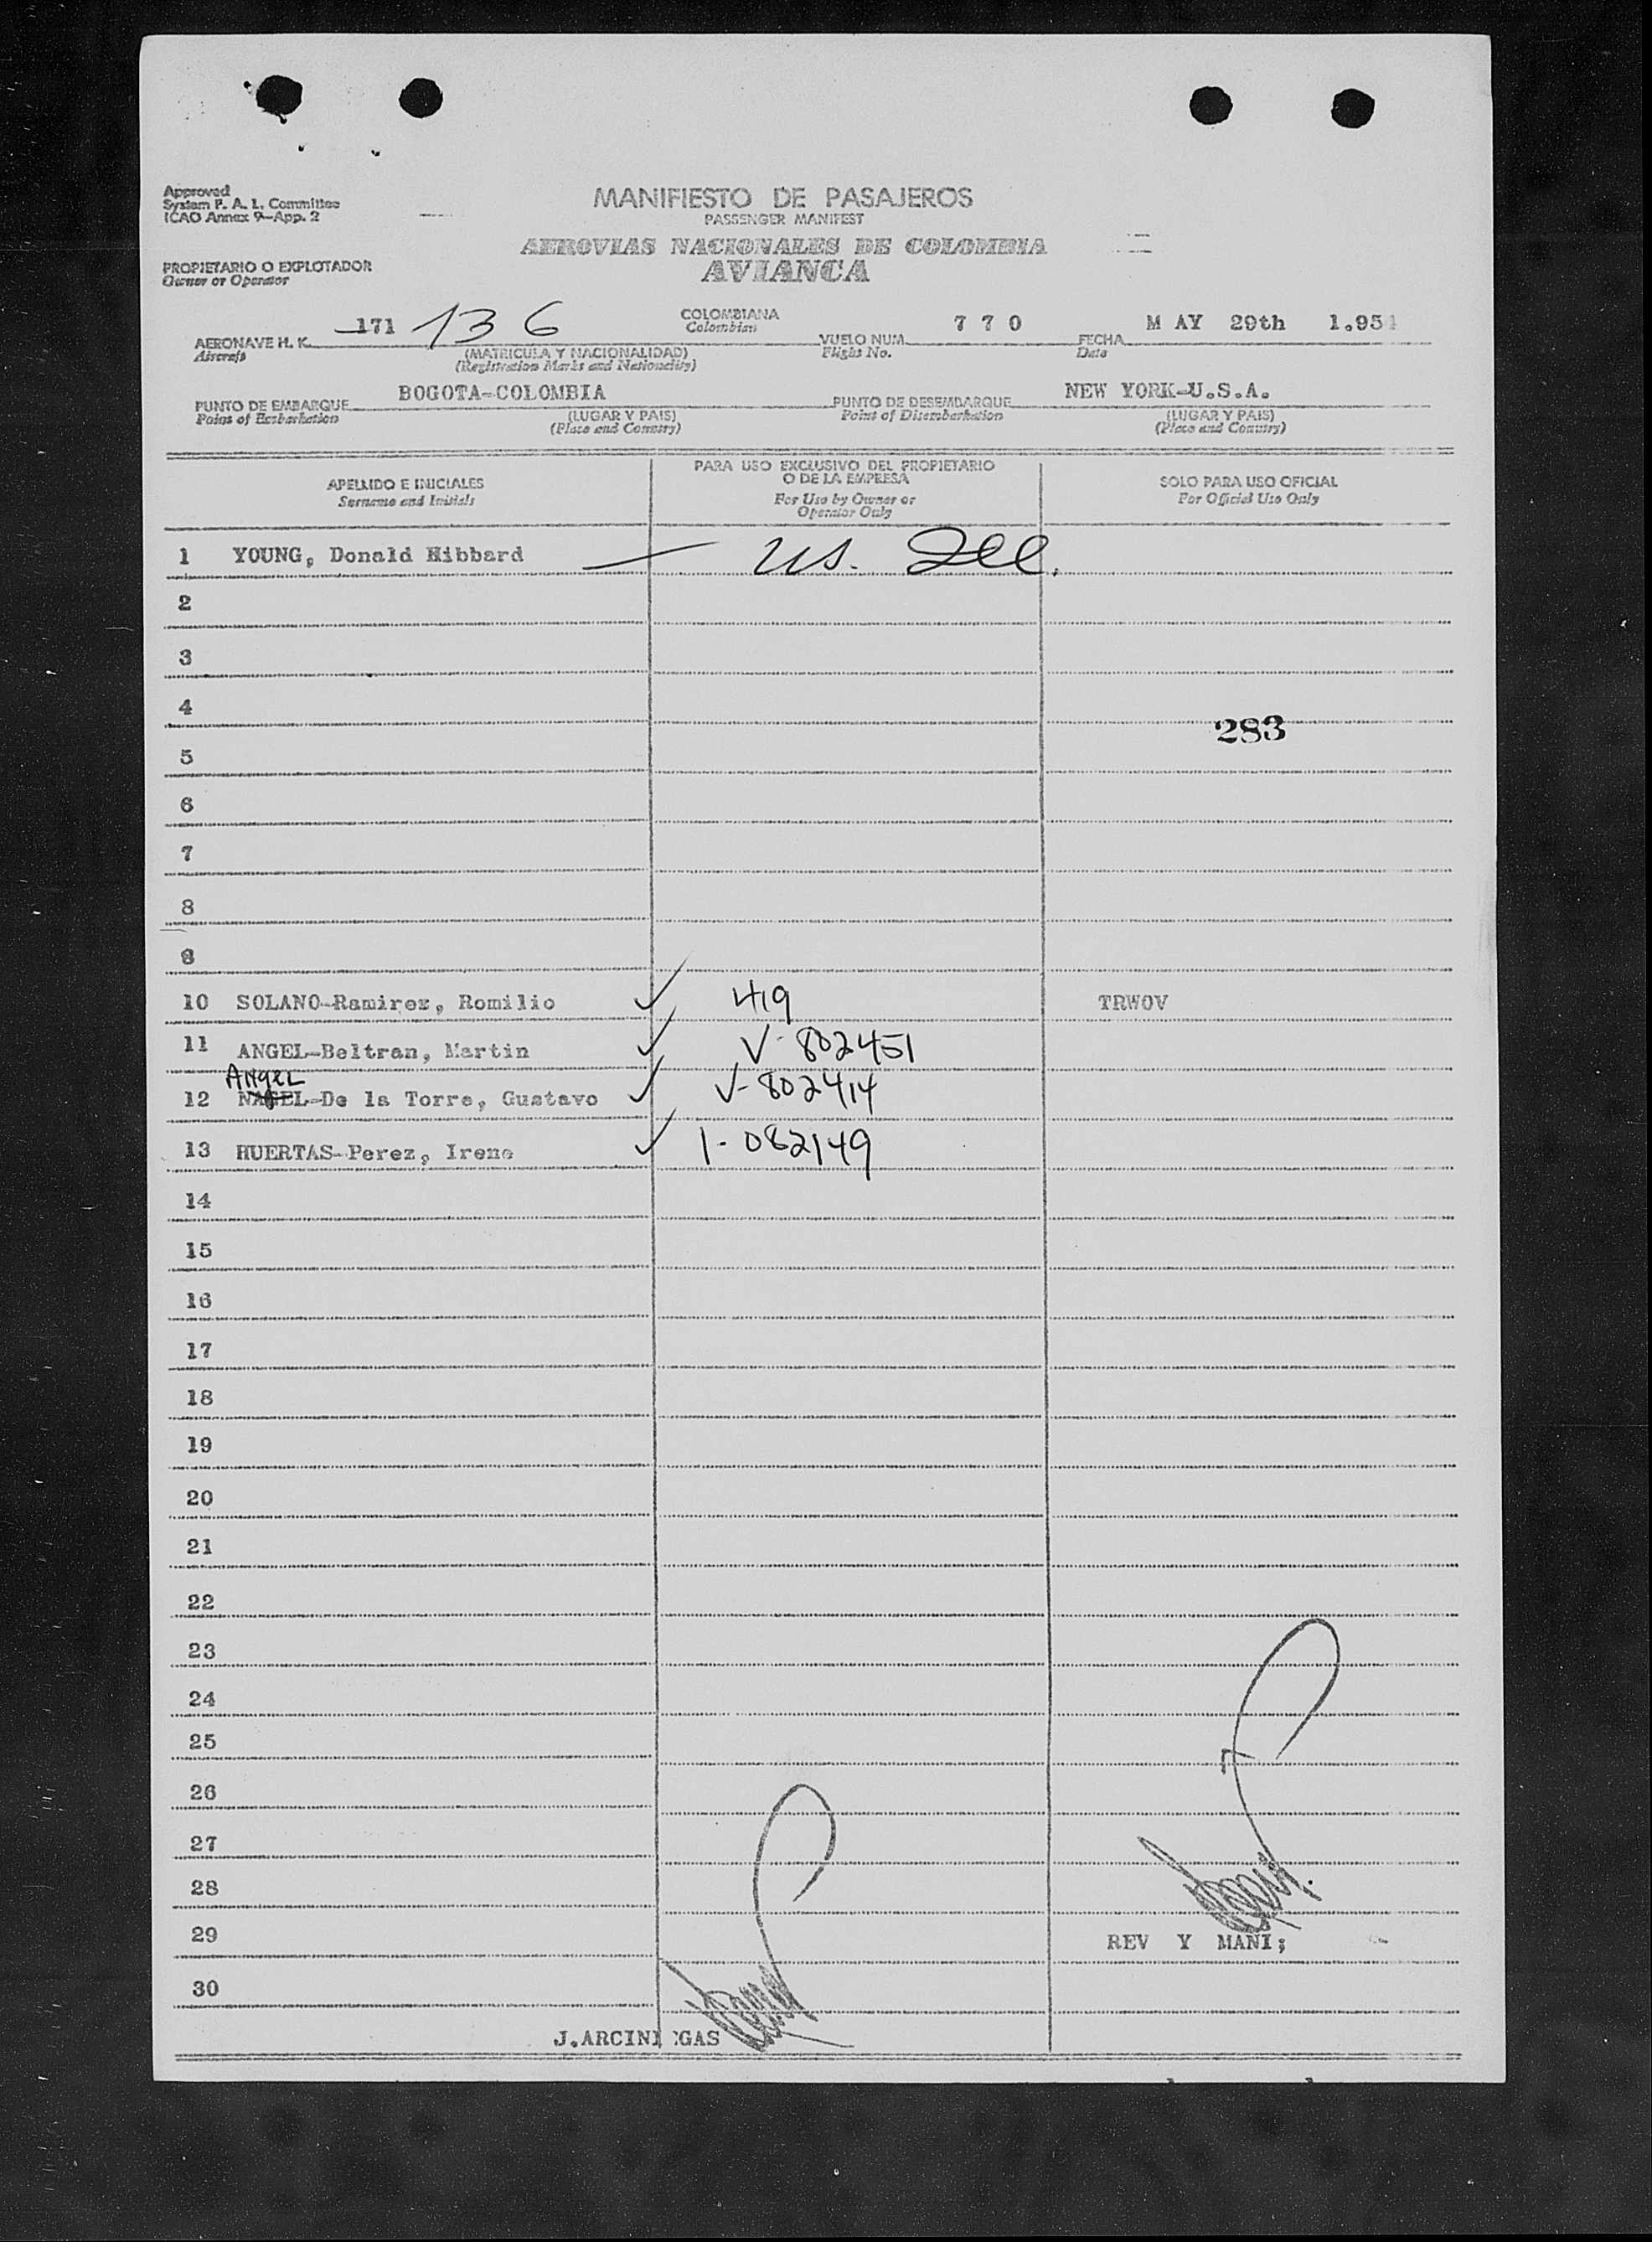 Approved
System F. A. L. Committee
ICAO Annex 9-App. 2
MANIFIESTO DE PASAJEROS
PASSENGER MANIFEST
AEROVIAS NACIONALES DE COLOMBIA
AVIANCA
PROPIETARIO O EXPLOTADOR
Owner or Operator
AERONAVE H. K. 171 136 COLOMBIANA VUELO NUM. 7 7 0 FECHA M AY 29th 1.951
Aircraft Colombian Flight No. Date
(MATRICULA Y NACIONALIDAD)
(Registration Marks and Nationality)
PUNTO DE EMBARQUE BOGOTA-COLOMBIA PUNTO DE DESEMBARQUE NEW YORK-U.S.A.
Point of Embarkation (LUGAR Y PAIS) Point of Disembarkation (LUGAR Y PAIS)
(Place and Country) (Place and Country)
APELLIDO E INICIALES
Surname and Initials
PARA USO EXCLUSIVO DEL PROPIETARIO
O DE LA EMPRESA
For Use by Owner or
Operator Only
SOLO PARA USO OFICIAL
For Official Use Only
1 YOUNG, Donald Hibbard — US.
2
3
4
283
5
6
7
8
9
10 SOLANO-Ramirez, Romilio ✓ 419 TRWOV
11 ANGEL-Beltran, Martin ✓ V-802451
ANgEL
12 NAGEL-De la Torre, Gustavo ✓ V-802414
13 HUERTAS-Perez, Irene ✓ 1-082149
14
15
16
17
18
19
20
21
22
23
24
25
26
27
28
29 REV Y MANI;
30
J.ARCINIEGAS